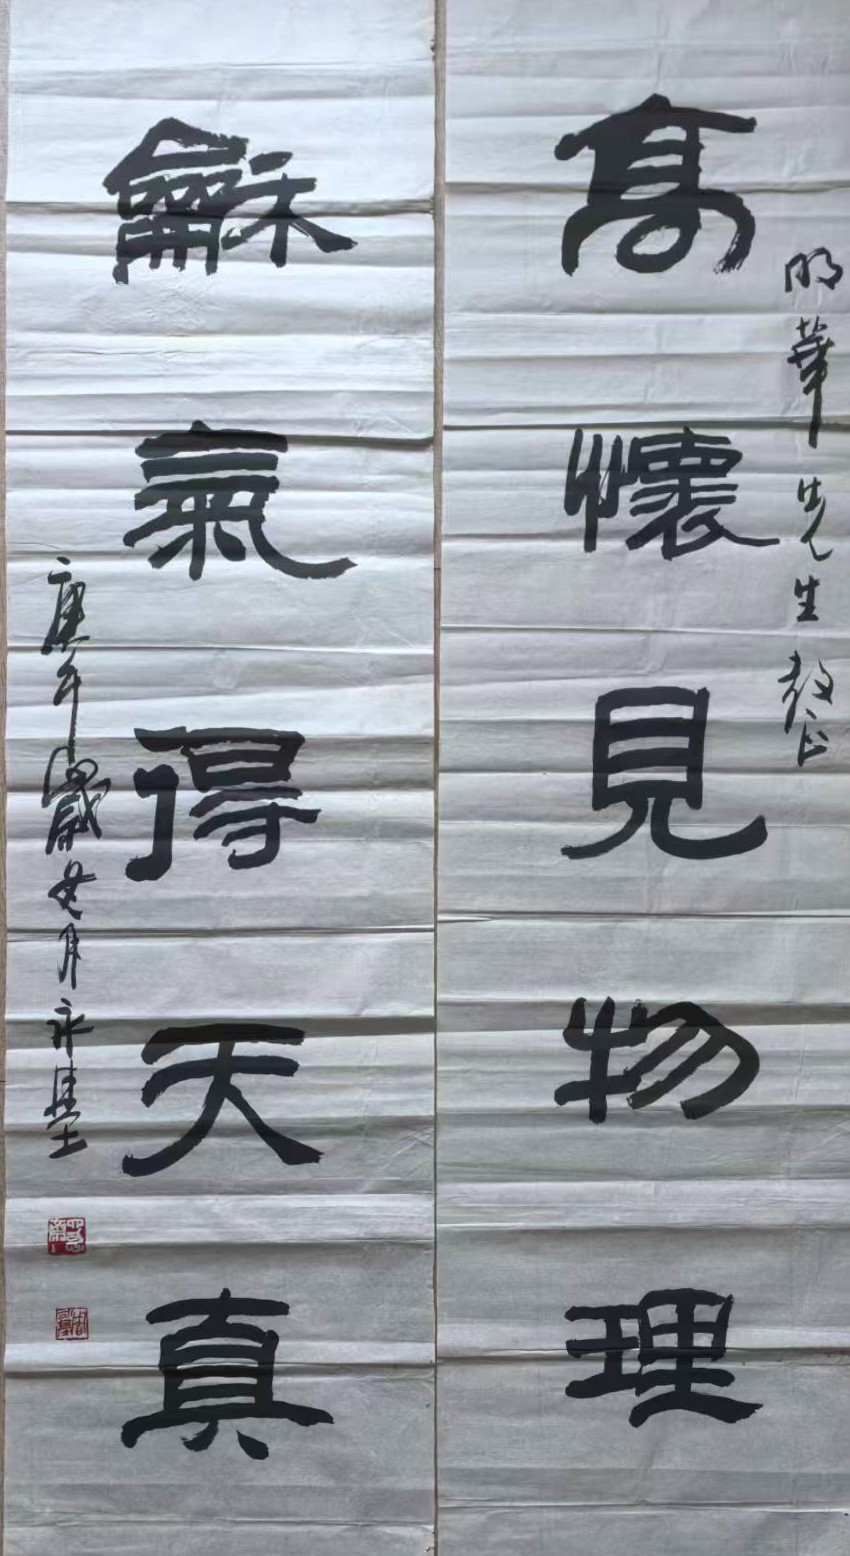 明華先生教正
高懷見物理
龢氣得天真
庚午歲 月永